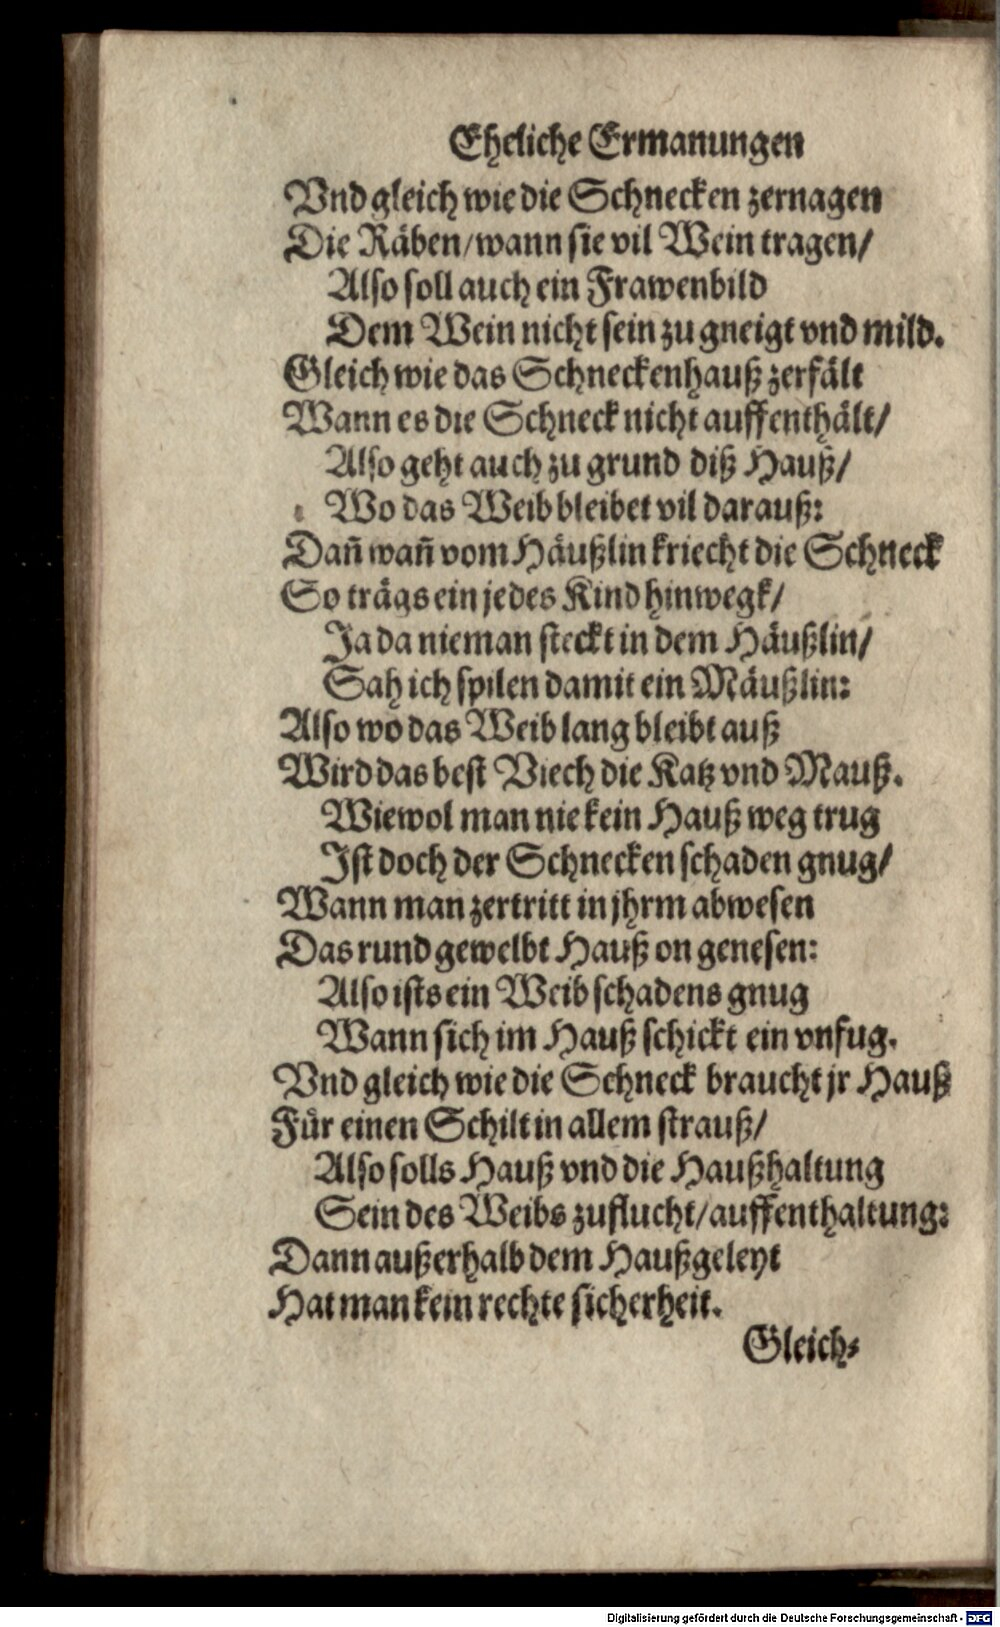 Eheliche Ermanungen
Vnd gleich wie die Schnecken zernagen
Die Räben/wann sie vil Wein tragen/
Also soll auch ein Frawenbild
Dem Wein nicht sein zu gneigt vnd mild.
Gleich wie das Schneckenhauß zerfält
Wann es die Schneck nicht auffenthält/
Also geht auch zu grund diß Hauß/
Wo das Weib bleibet vil darauß:
Dañ wañ vom Häußlin kriecht die Schneck
So trägs ein jedes Kind hinwegk/
Ja da nieman steckt in dem Häußlin/
Sah ich spilen damit ein Mäußlin:
Also wo das Weib lang bleibt auß
Wird das best Viech die Katz vnd Mauß.
Wiewol man nie kein Hauß weg trug
Ist doch der Schnecken schaden gnug/
Wann man zertritt in jhrm abwesen
Das rund gewelbt Hauß on genesen:
Also ists ein Weib schadens gnug
Wann sich im Hauß schickt ein vnfug.
Vnd gleich wie die Schneck braucht jr Hauß
Für einen Schilt in allem strauß/
Also solls Hauß vnd die Haußhaltung
Sein des Weibs zuflucht/auffenthaltung:
Dann außerhalb dem Haußgeleyt
Hat man kein rechte sicherheit.
Gleich⸗
Digitalisierung gefördert durch die Deutsche Forschungsgemeinschaft - DFG